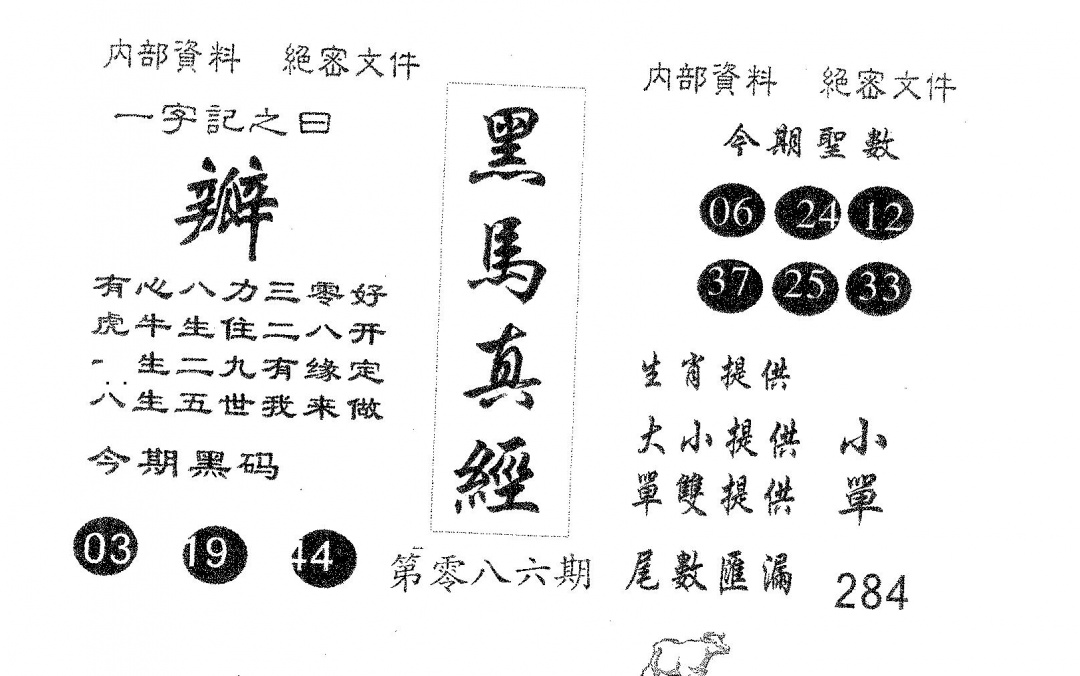 内部資料 絕密文件
一字記之曰
瓣
有心八力三零好
虎牛生住二八开
一生二九有缘定
八生五世我来做
今期黑码
03 19 44
黑馬真經
第零八六期
内部資料 絕密文件
今期聖數
06 24 12
37 25 33
生肖提供
大小提供 小
單雙提供 單
尾數匯漏 284